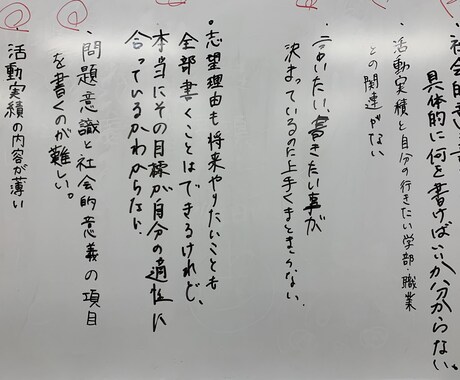 社会的意義
具体的に何を書けばいいか分からない。
・活動実績と自分の行きたい学部・職業
との関連がない
・言いたい、書きたい事が
決まっているのに上手くまとまらない。
・志望理由も将来やりたいことも
全部書くことはできるけれど、
本当にその目標が自分の適性に
合っているかわからない。
・問題意識と社会的意義の項目
を書くのが難しい。
活動実績の内容が薄い